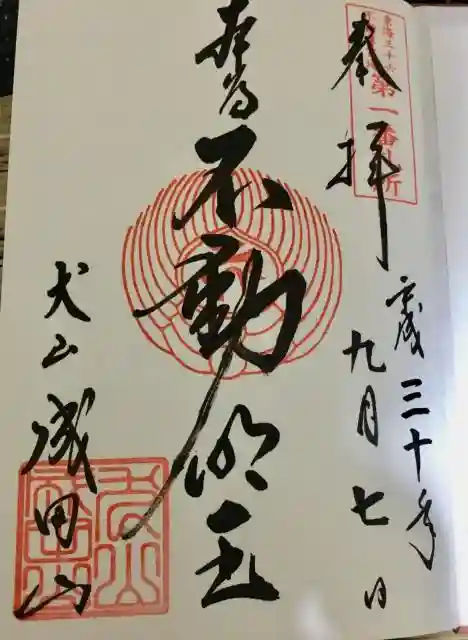 奉拝
東海三十六
第一番札所
平成三十年
九月七日
本尊
不動明王
犬山
成田山